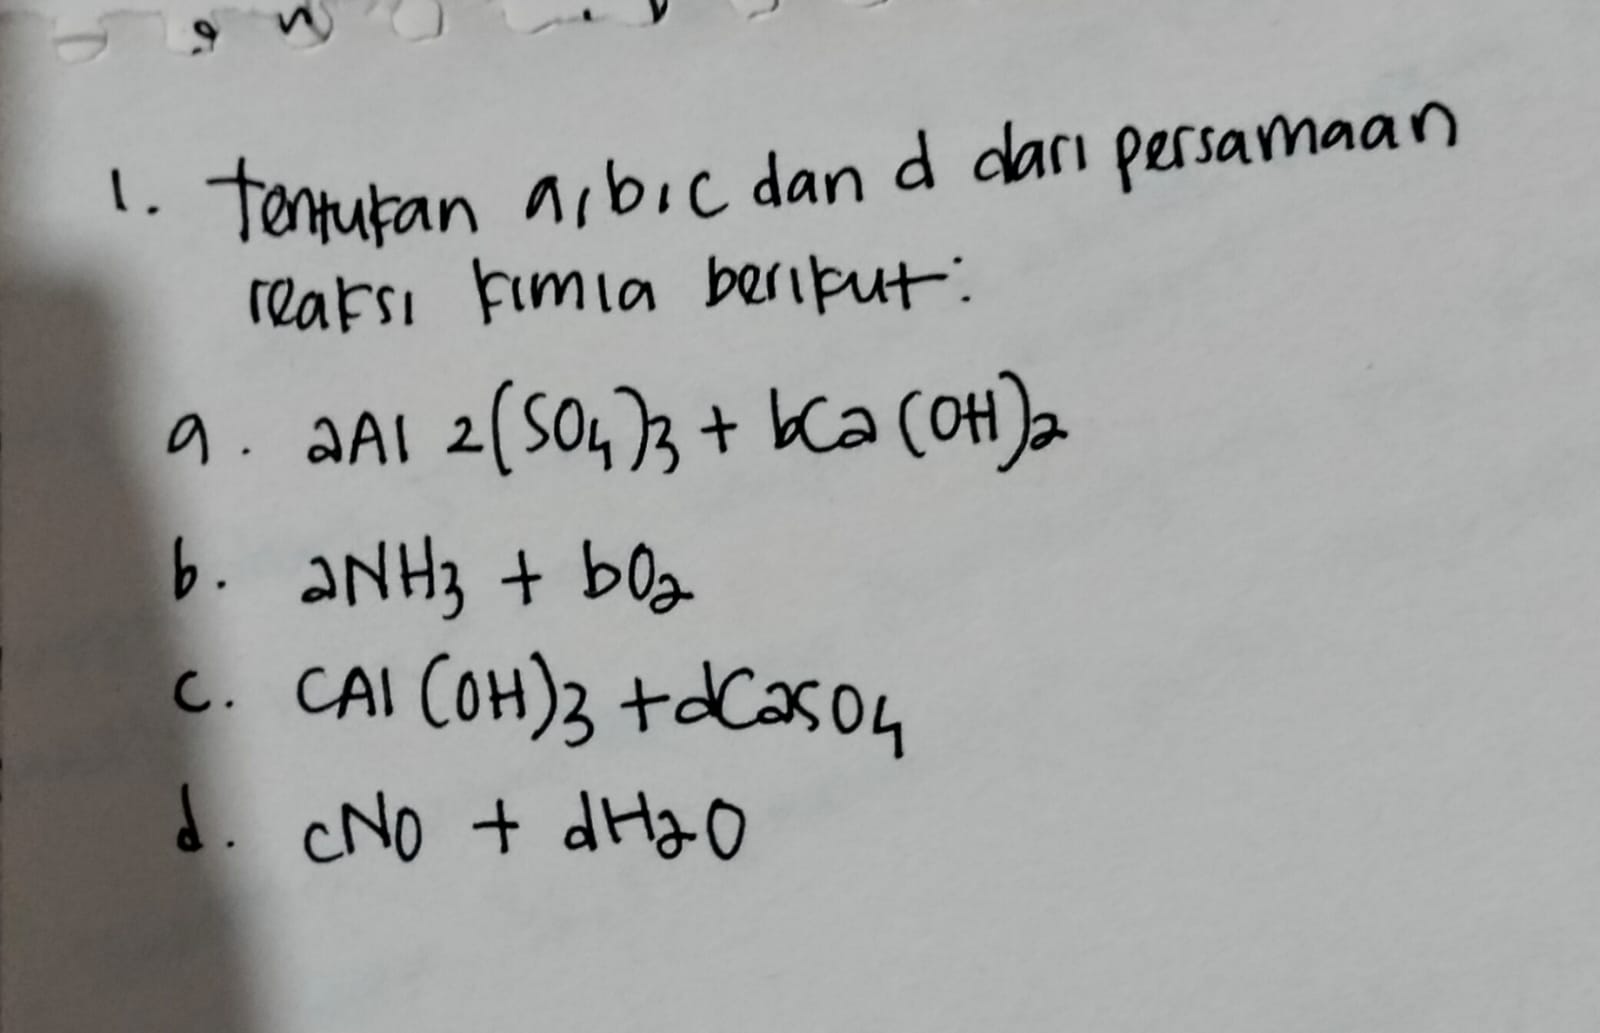 1. Tentukan a, b, c dan d dari persamaan
reaksi kimia berikut:
a. aAl 2(SO4)3 + bCa(OH)2
b. aNH3 + bO2
c. CAl(OH)3 + dCaSO4
d. cNO + dH2O